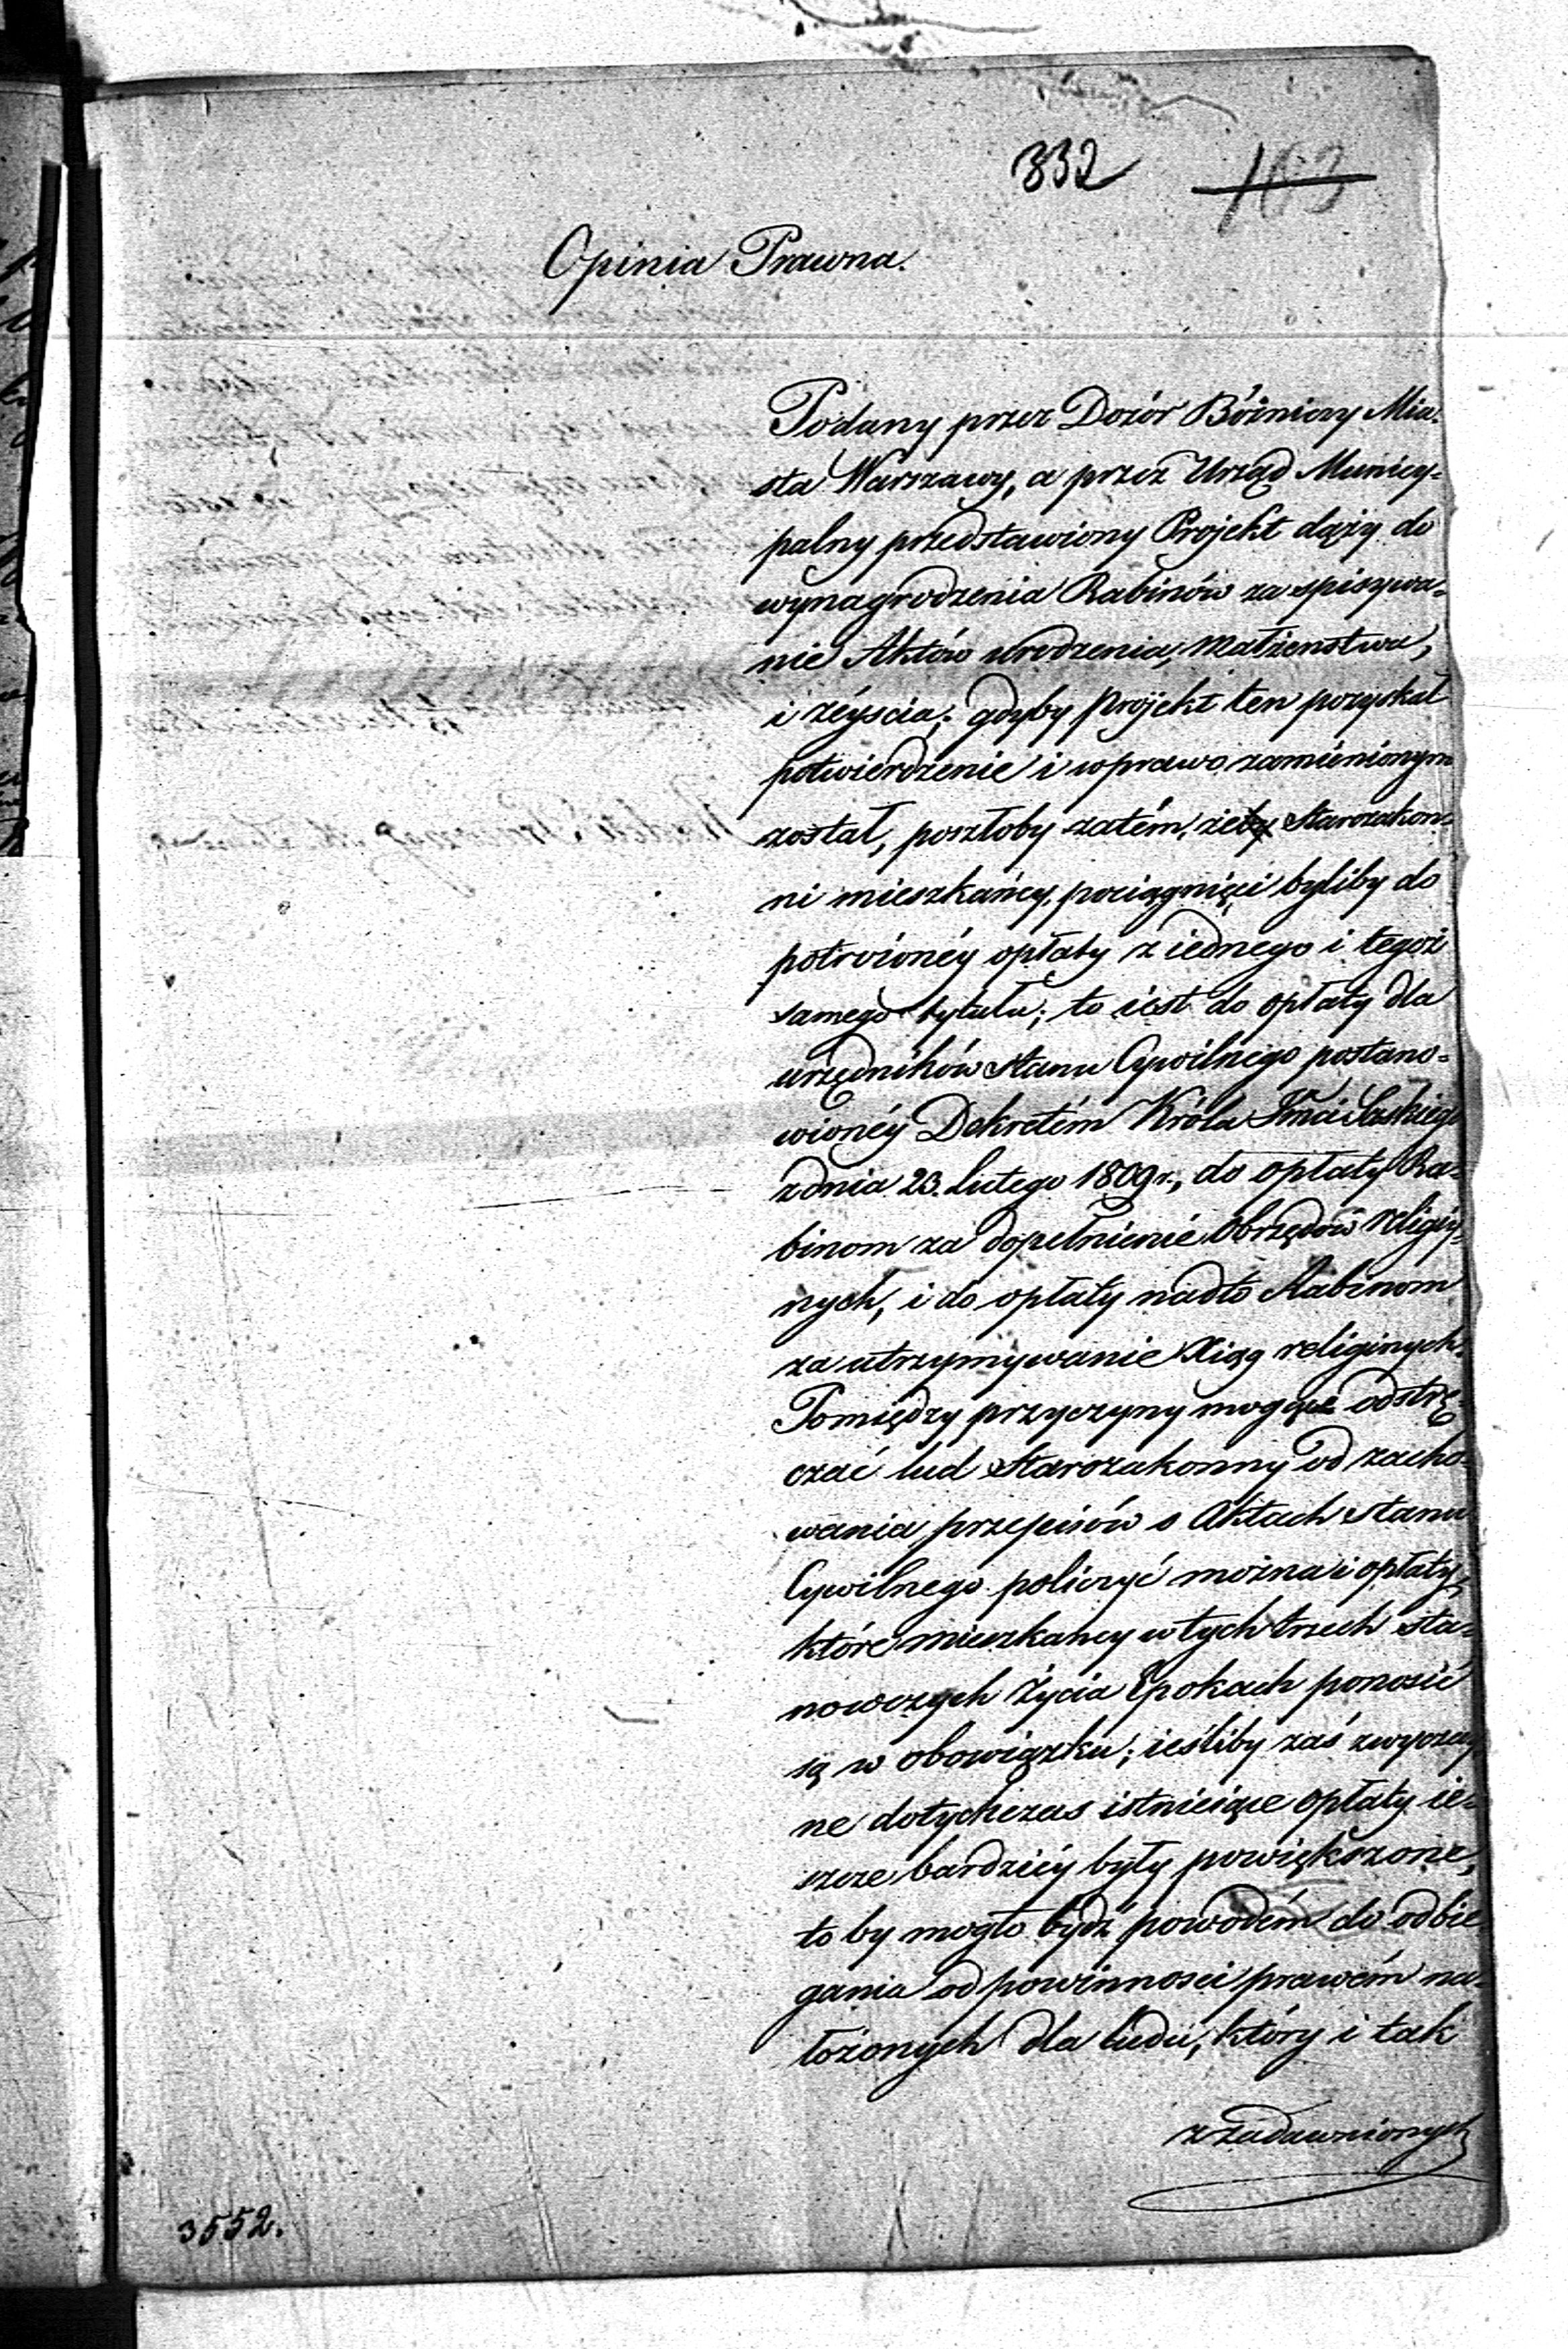 332 103
Opinia Prawna.
Podany przez Dozór Bóżniczy Mia-
sta Warszawy, a przez Urząd Municy-
palny przedstawiony Projekt dąży do
wynagrodzenia Rabinów za spisywa-
nie Aktów urodzenia, małżenstwa,
i zéyscia; gdyby Projekt ten pozyskał
potwierdzenie i w prawo zamienionym
został, poszłoby zatém, żeby Starozakon-
ni mieszkańcy, pociągnięci byliby do
potróinéy opłaty z iednego i tegoż
samego tytułu; to iest do opłaty dla
urzędników Stanu Cywilnego postano-
wionéy Dekretém Króla Jmci Saskiego
z dnia 23. Lutego 1809 r., do opłaty Ra-
binom za dopełnienie Obrzędów religiy-
nych, i do opłaty nadto Rabinom
za utrzymywanie Xiąg religinych.
Pomiędzy przyczyny mogące odstrę-
czać lud Starozakonny od zacho-
wania przepisów o Aktach Stanu
Cywilnego policzyć można i opłaty,
które mieszkancy w tych trzech sta-
nowczych Życia Epokach ponosić
są w obowiązku; ieśliby zaś zwyczay-
ne dotychczas istnieiące opłaty ie-
szcze bardziéy były powiększone,
to by mogło bydź powodém do odbie
gania od powinnosci prawém na-
łożonych dla ludu, który i tak
z zadawnionych
3552.